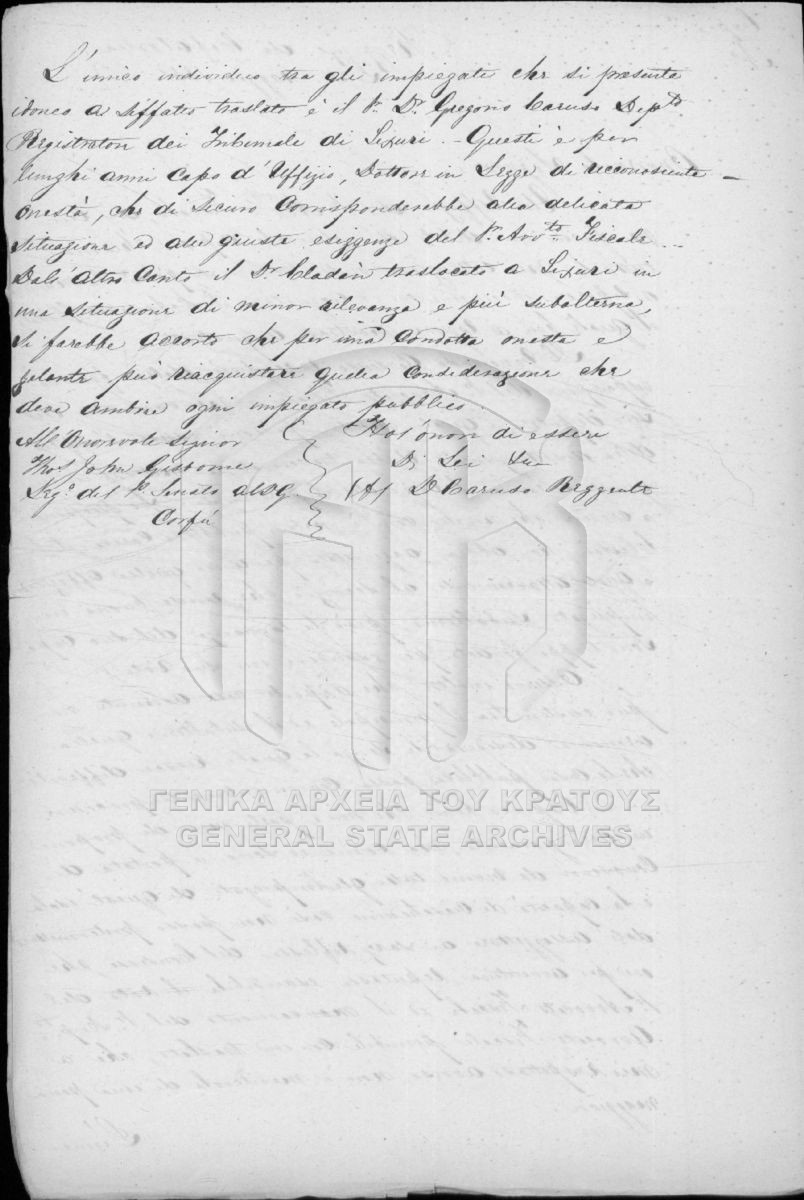 L'unico individuo tra gli impiegati che si presenta
idoneo a siffatto traslato è il Sr. Dr. Gregorio Caruso Depto
Registrator dei Tribunale di Lixuri. - Questi è per
lunghi anni Capo d'Uffizio, Dottore in Legge di riconosciuta -
onestà, che di sicuro Corrisponderebbe alla delicata
situazione ed alle giuste esiggenze del Sr. Avvto. Fiscale...
Dall'altro Canto il Dr. Cladàn traslocato a Lixuri in
una situazione di minor rilevanza e più subalterna,
si farebbe accorto che per una Condotta onesta e
zelante può riacquistare quella Considerazione che
deve ambire ogni impiegato pubblico.
All' Onorevole Signor
Thos John Gisborne
Sego. del Po. Senato
Corfù
Ho l'onor di essere
Di Lei
D Caruso Reggente
ΓΕΝΙΚΑ ΑΡΧΕΙΑ ΤΟΥ ΚΡΑΤΟΥΣ
GENERAL STATE ARCHIVES